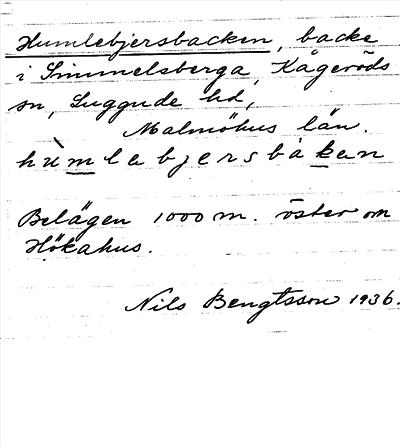 Humlebjersbacken, backe
i Simmelsberga, Kågeröds
sn, Luggude hd,
Malmöhus län.
hùmlabjersbàkan
Belägen 1000 m. öster om
Hökahus.
Nils Bengtsson 1936.